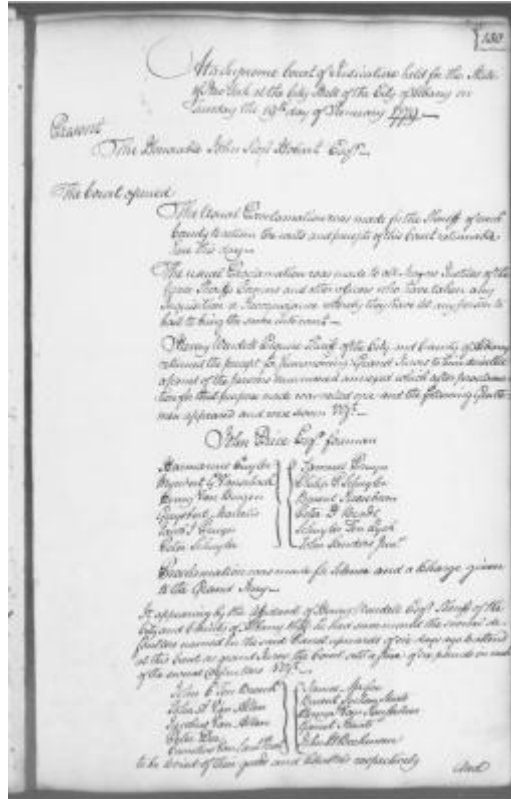 130
At a Supreme Court of Judicature held for the State
of New York at the City Hall of the City of Albany on
Tuesday the 19th day of January 1779
Present
The Honorable John Sloss Hobart Esqr
The Court opened
The Usual Proclamation was made for the Sheriff of each
County to return the writs and precepts of this Court returnable
here this day
The usual Proclamation was made to all Mayors Justices of the
Peace Sheriffs Coroners and other officers who have taken any
Inquisition or Recognizance whereby they have let any person to
bail to bring the same into court
Henry Wendell Esquire Sheriff of the City and County of Albany
returned the precept for summoning Grand Jurors to him directed
a panel of the persons summoned annexed which after proclama
tion for that purpose made was called over and the following Gentle
men appeared and were sworn Vizt
John Price Esqr foreman
Harmanus Cuyler
Henry Van
Peter Schuyler
Philip P. Schuyler
Peter
Schuyler Ten Eyck
John Sanders Junr
Proclamation was made for silence and a Charge given
to the Grand Jury
It appearing by the Affidavit of Henry Wendell Esqr Sheriff of the
City and County of Albany that he had summoned the several de
faulters named in the said Panel upwards of six days ago to attend
at this Court as grand Jurors the Court sett a fine of six pounds on each
of the several Defaulters Vizt
John Ten Broeck
John Van Allen
Van Allen
Peter
James
to be levied of their goods and Chattels respectively
And